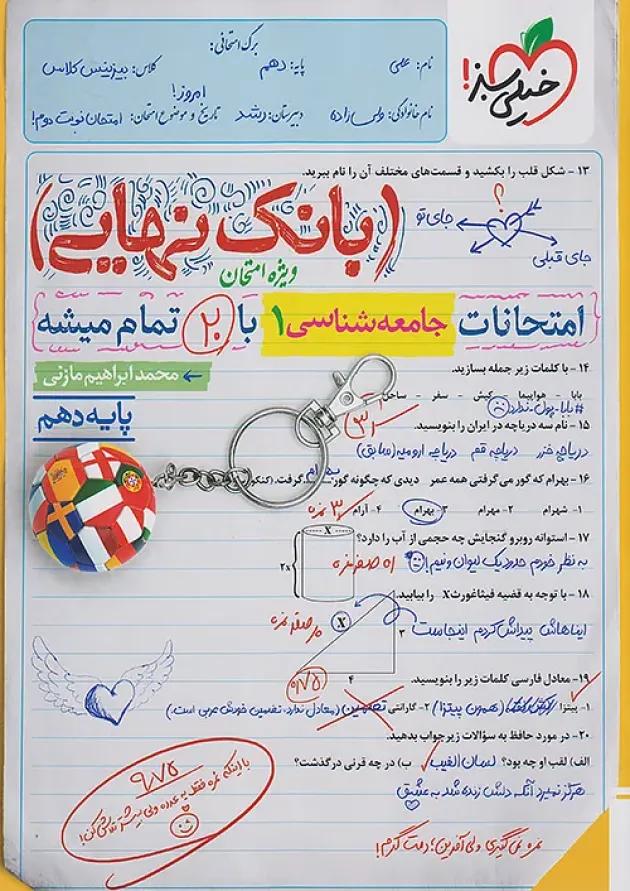 برگ امتحانی:
نام: علی
پایه: دهم
کلاس: بیزینس کلاس
نام خانوادگی: ولی زاده
دبیرستان: رشد
تاریخ و موضوع امتحان: امروز! امتحان نوبت دوم!
خیلی سبز!
۱۳ - شکل قلب را بکشید و قسمت‌های مختلف آن را نام ببرید.
؟
جای تو
جای قبلی
(بانک نهایی)
ویژه امتحان
امتحانات جامعه‌شناسی ۱ با ۲۰ تمام میشه
محمد ابراهیم مازنی
پایه دهم
۱۴ - با کلمات زیر جمله بسازید.
بابا - هواپیما - کیش - سفر - ساحل
#بابا-پول-ندارد
۱۵ - نام سه دریاچه در ایران را بنویسید.
دریاچه خزر دریاچه قم دریاچه ارومیه (سابق)
۱۶ - بهرام که گور می گرفتی همه عمر دیدی که چگونه گور بهرام گرفت. (کنکور
۱- شهرام ۲- مهرام ۳- بهرام ۴- آرام
۳ نمره
۱۷ - استوانه روبرو گنجایش چه حجمی از آب را دارد؟
X
۲x
به نظر خودم حدود یک لیوان و نیم!
۱۸ - با توجه به قضیه فیثاغورث X را بیابید.
ایناهاش پیداش کردم اینجاست
X
۳
۴
۱۹- معادل فارسی کلمات زیر را بنویسید.
۱- پیتزا (همون پیتزا) ۲- گارانتی تضمین (معادل ندارد، تضمین خودش عربی است.)
۲۰- در مورد حافظ به سؤالات زیر جواب بدهید.
الف) لقب او چه بود؟ لسان الغیب ب) در چه قرنی درگذشت؟
هرگز نمیرد آنکه دلش زنده شد به عشق
۹/۷۵
با اینکه نمره فقط یه عدده ولی بیشتر تلاش کن!
نمره نمی‌گیری ولی آفرین؛ دمت گرم!